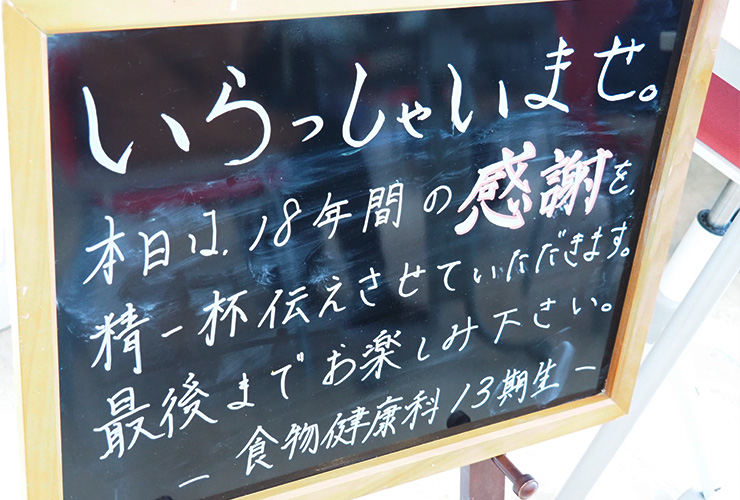 いらっしゃいませ。
本日は、18年間の感謝を、
精一杯伝えさせていただきます。
最後までお楽しみ下さい。
– 食物健康科13期生 –